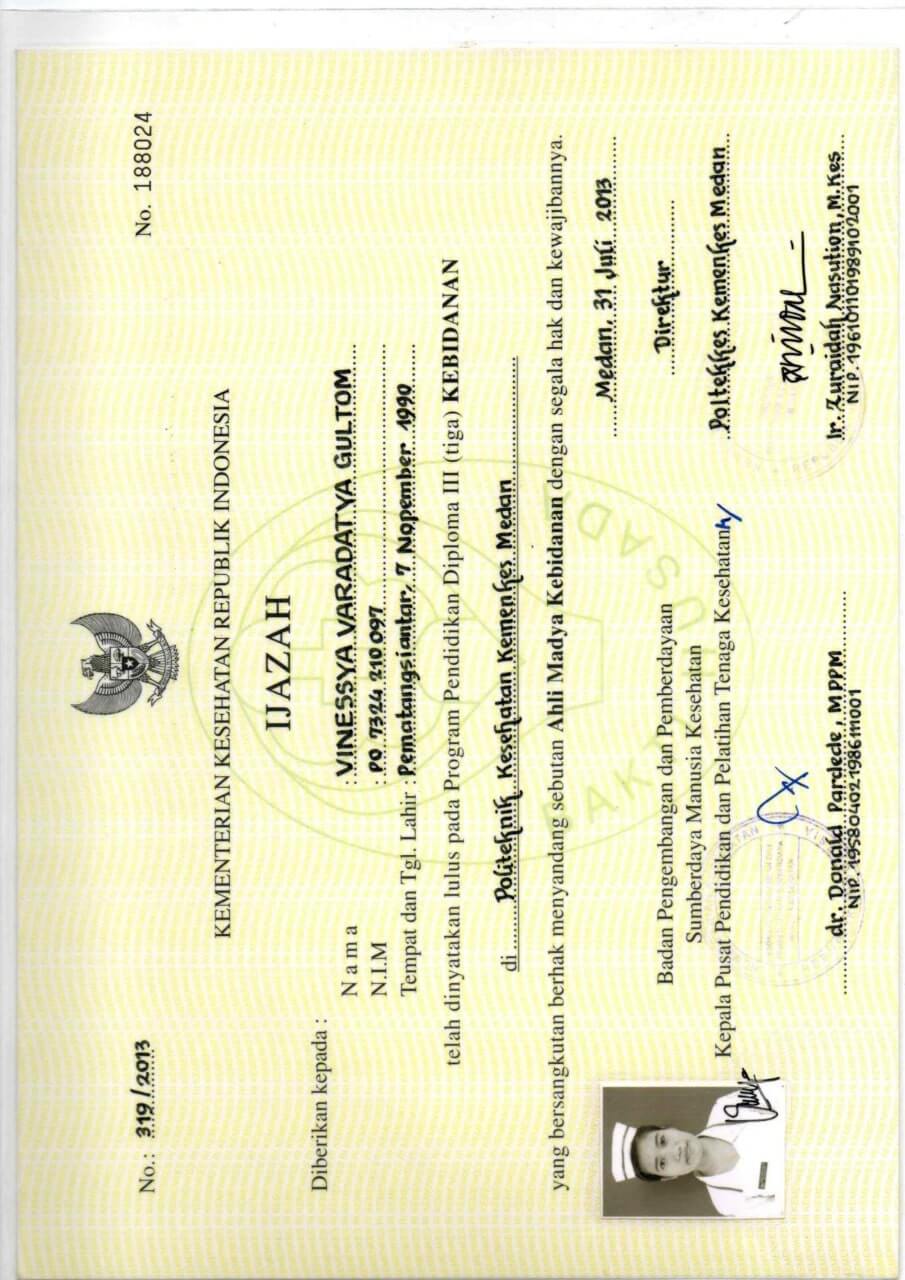 No.: 319/2013
No. 188024
KEMENTERIAN KESEHATAN REPUBLIK INDONESIA
IJAZAH
Diberikan kepada :
N a m a : VINESSYA VARADATYA GULTOM
N.I.M : PO 7324 210 097
Tempat dan Tgl. Lahir : Pematangsiantar, 7 Nopember 1990
telah dinyatakan lulus pada Program Pendidikan Diploma III (tiga) KEBIDANAN
di Politeknik Kesehatan Kemenkes Medan
yang bersangkutan berhak menyandang sebutan Ahli Madya Kebidanan dengan segala hak dan kewajibannya.
Medan, 31 Juli 2013
Badan Pengembangan dan Pemberdayaan
Sumberdaya Manusia Kesehatan
Kepala Pusat Pendidikan dan Pelatihan Tenaga Kesehatan
dr. Donald Pardede, MPPM
NIP. 195804021986111001
Direktur
Poltekkes Kemenkes Medan
Ir. Zuraidah Nasution, M.Kes
NIP. 196101101989102001
BAKTI HUSADA